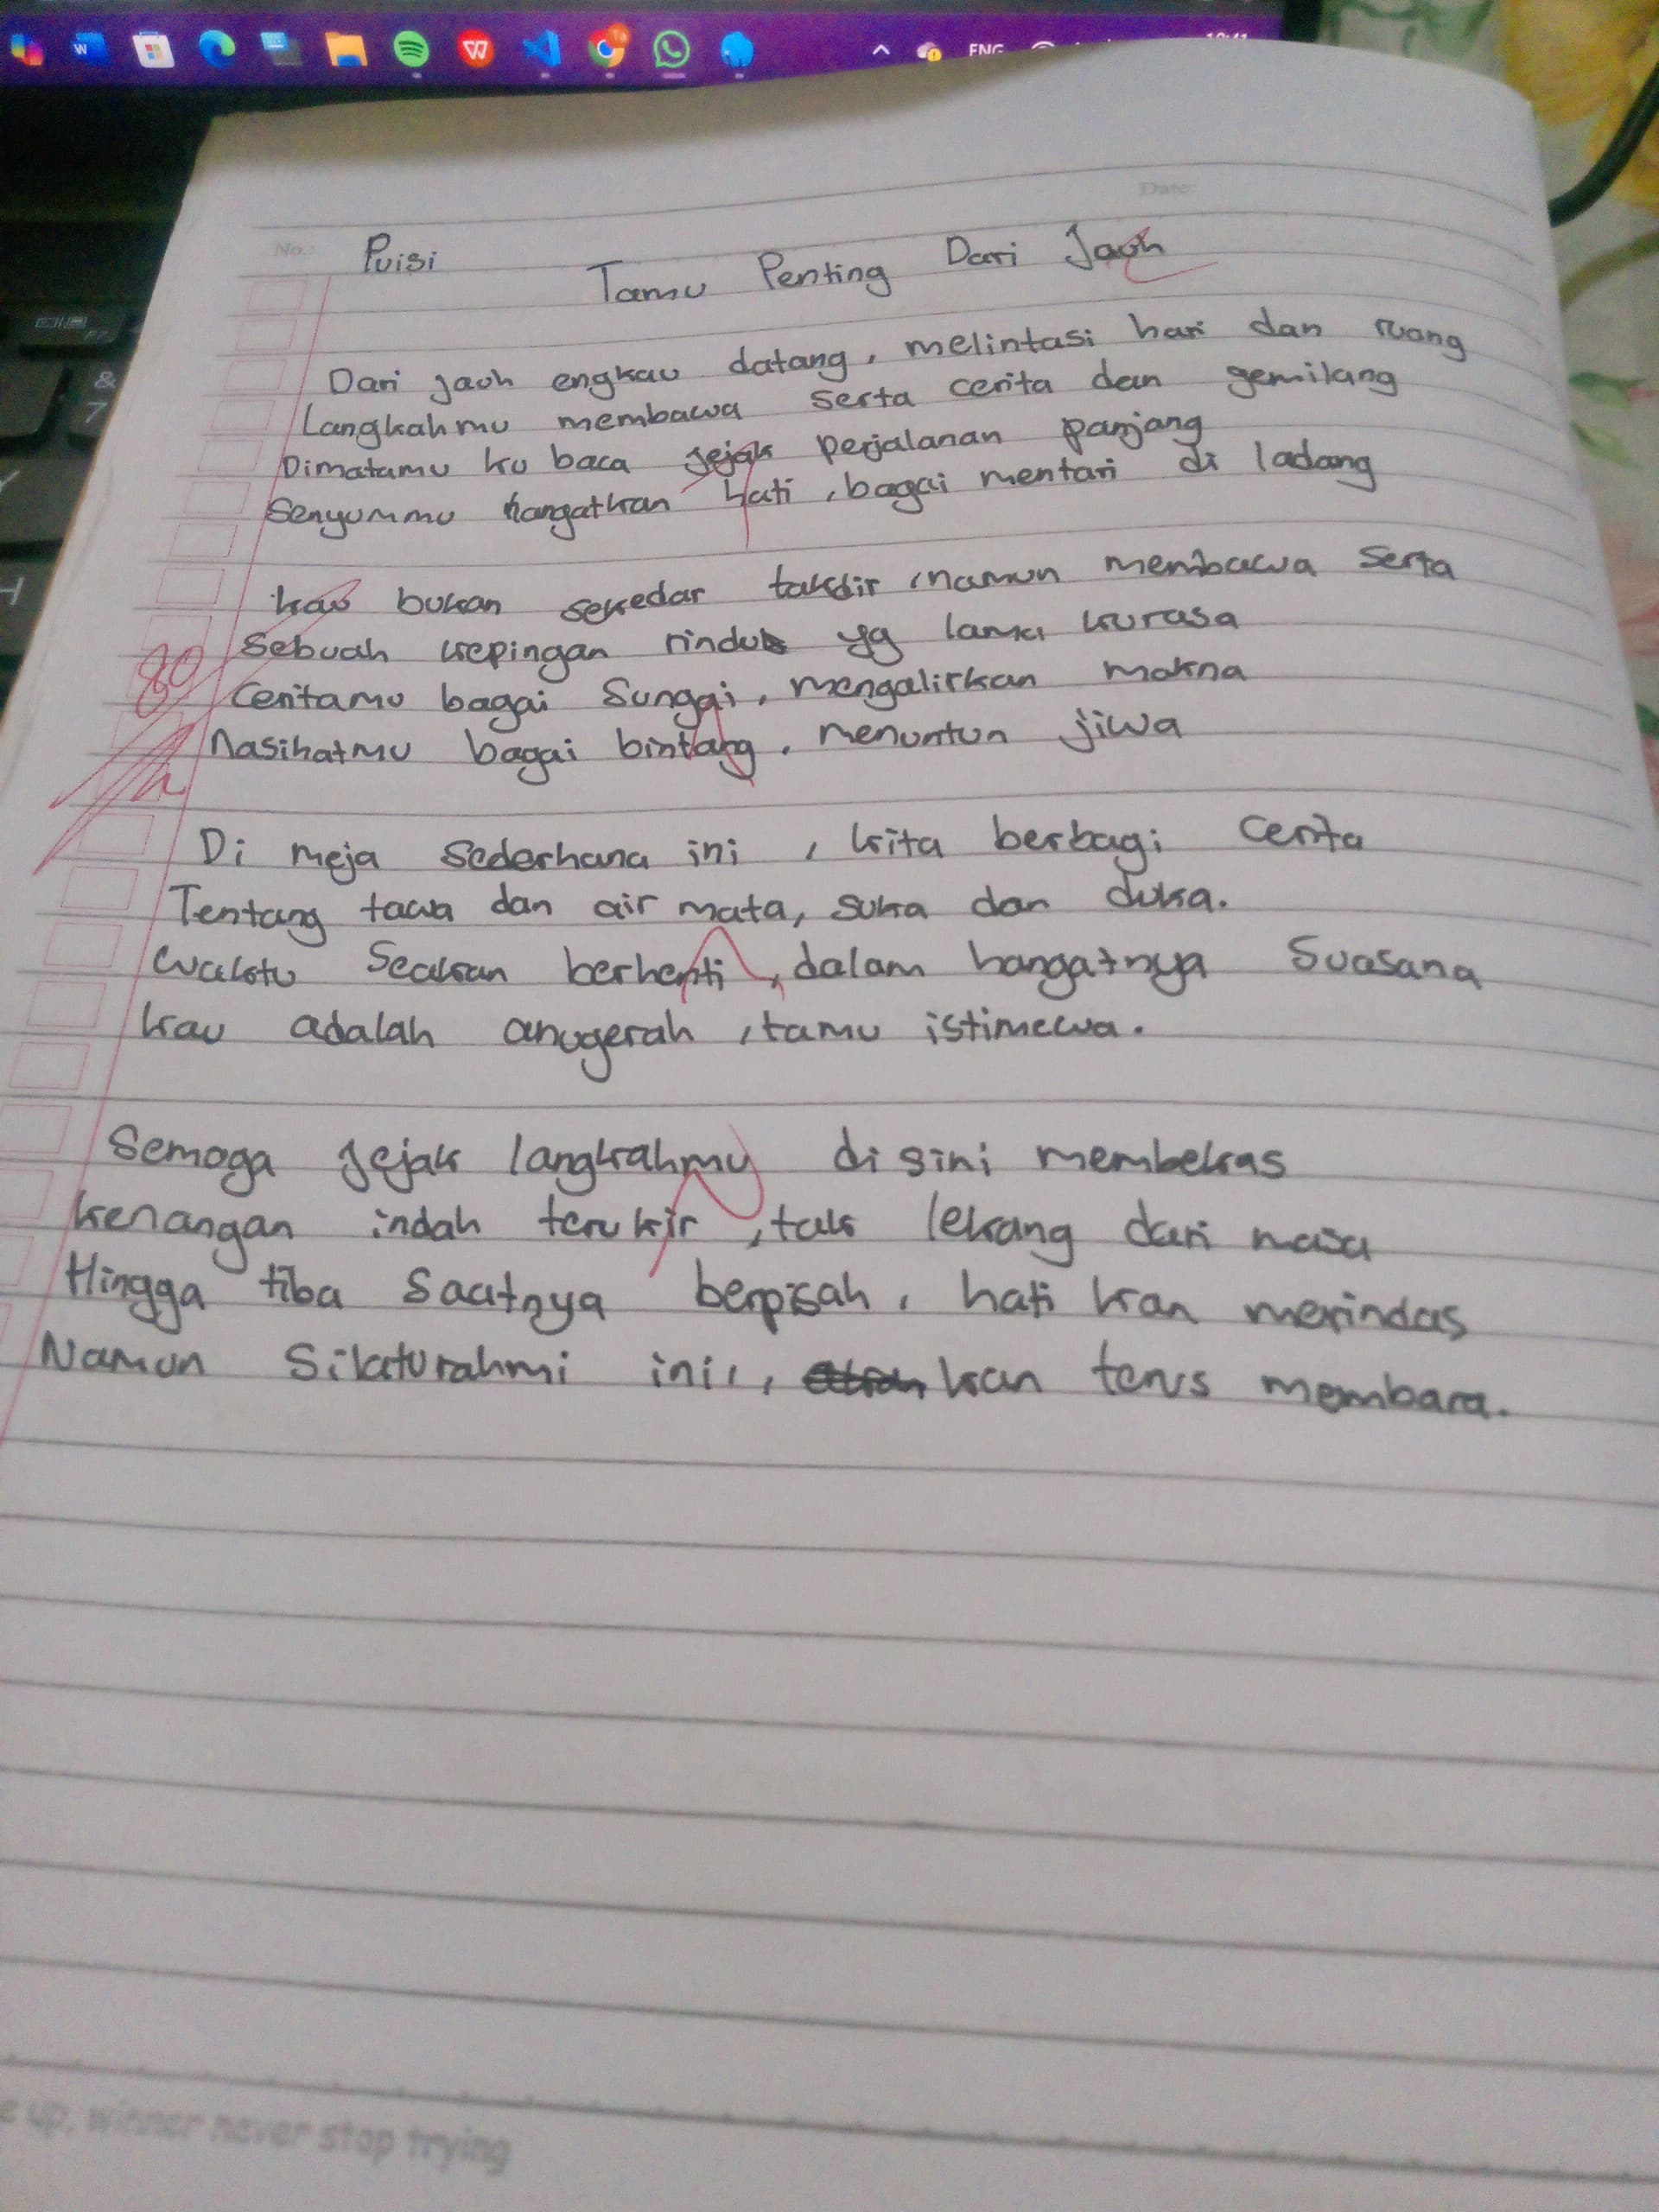 ENG
No.:
Date:
Puisi
Tamu Penting Dari Jauh
Dari jauh engkau datang, melintasi hari dan ruang
Langkahmu membawa serta cerita dan gemilang
Dimatamu ku baca jejak perjalanan panjang
Senyummu hangatkan hati, bagai mentari di ladang
kau bukan sekedar takdir, namun membawa serta
Sebuah kepingan rindu yg lama kurasa
Ceritamu bagai Sungai, mengalirkan makna
Nasihatmu bagai bintang, menuntun jiwa
80
Di meja sederhana ini, kita berbagi Cerita
Tentang tawa dan air mata, suka dan duka.
Waktu Seakan berhenti, dalam hangatnya Suasana
kau adalah anugerah, tamu istimewa.
Semoga jejak langkahmu disini membekas
kenangan indah terukir, tak lekang dari masa
Hingga tiba Saatnya berpisah, hati kan merindas
Namun Silaturahmi ini, kan terus membara.
e up, winner never stop trying